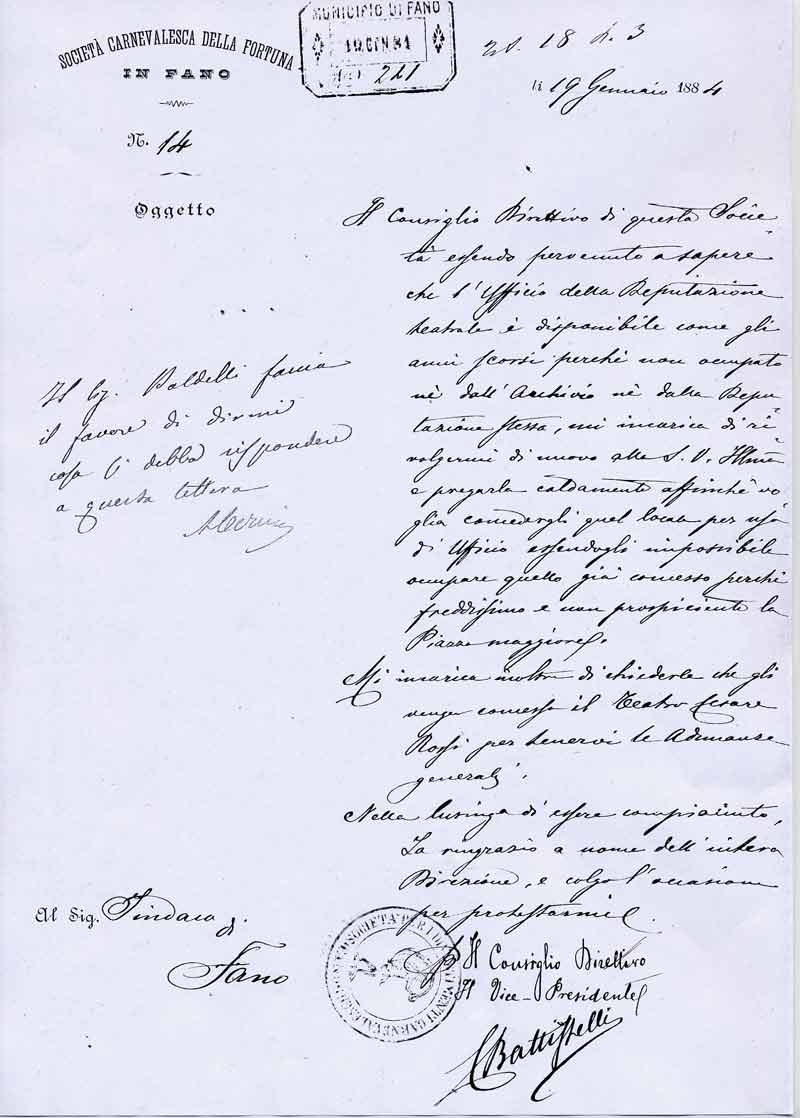 SOCIETÀ CARNEVALESCA DELLA FORTUNA
IN FANO
N. 14
Oggetto
MUNICIPIO DI FANO
19 GEN 84
221
18 3
li 19 Gennaio 1884
Il Consiglio Direttivo di questa Socie-
tà essendo pervenuto a sapere
che l'Ufficio della Deputazione
teatrale è disponibile come gli
anni scorsi perchè non occupato
nè dall'Archivio nè dalla Depu-
tazione stessa, mi incarica di ri
volgermi di nuovo alla S. V. Illma
e pregarla caldamente affinchè vo
glia concedergli quel locale per uso
di Ufficio essendogli impossibile
occupare quello già concesso perchè
freddissimo e non prospiciente la
Piazza maggiore.
Mi incarica inoltre di chiederle che gli
venga concesso il Teatro Cesare
Rossi per tenervi le Adunanze
generali.
Nella lusinga di essere compiaciuto,
La ringrazio a nome dell'intera
Direzione, e colgo l'occasione
per protestarmi
Il Consiglio Direttivo
Il Vice-Presidente
Battistelli
Il Baldelli faccia
il favore di dirmi
cosa si debba rispondere
a questa lettera
Al Sig. Sindaco
di
Fano
SOCIETÀ PER I DIVERTIMENTI CARNEVALESCHI